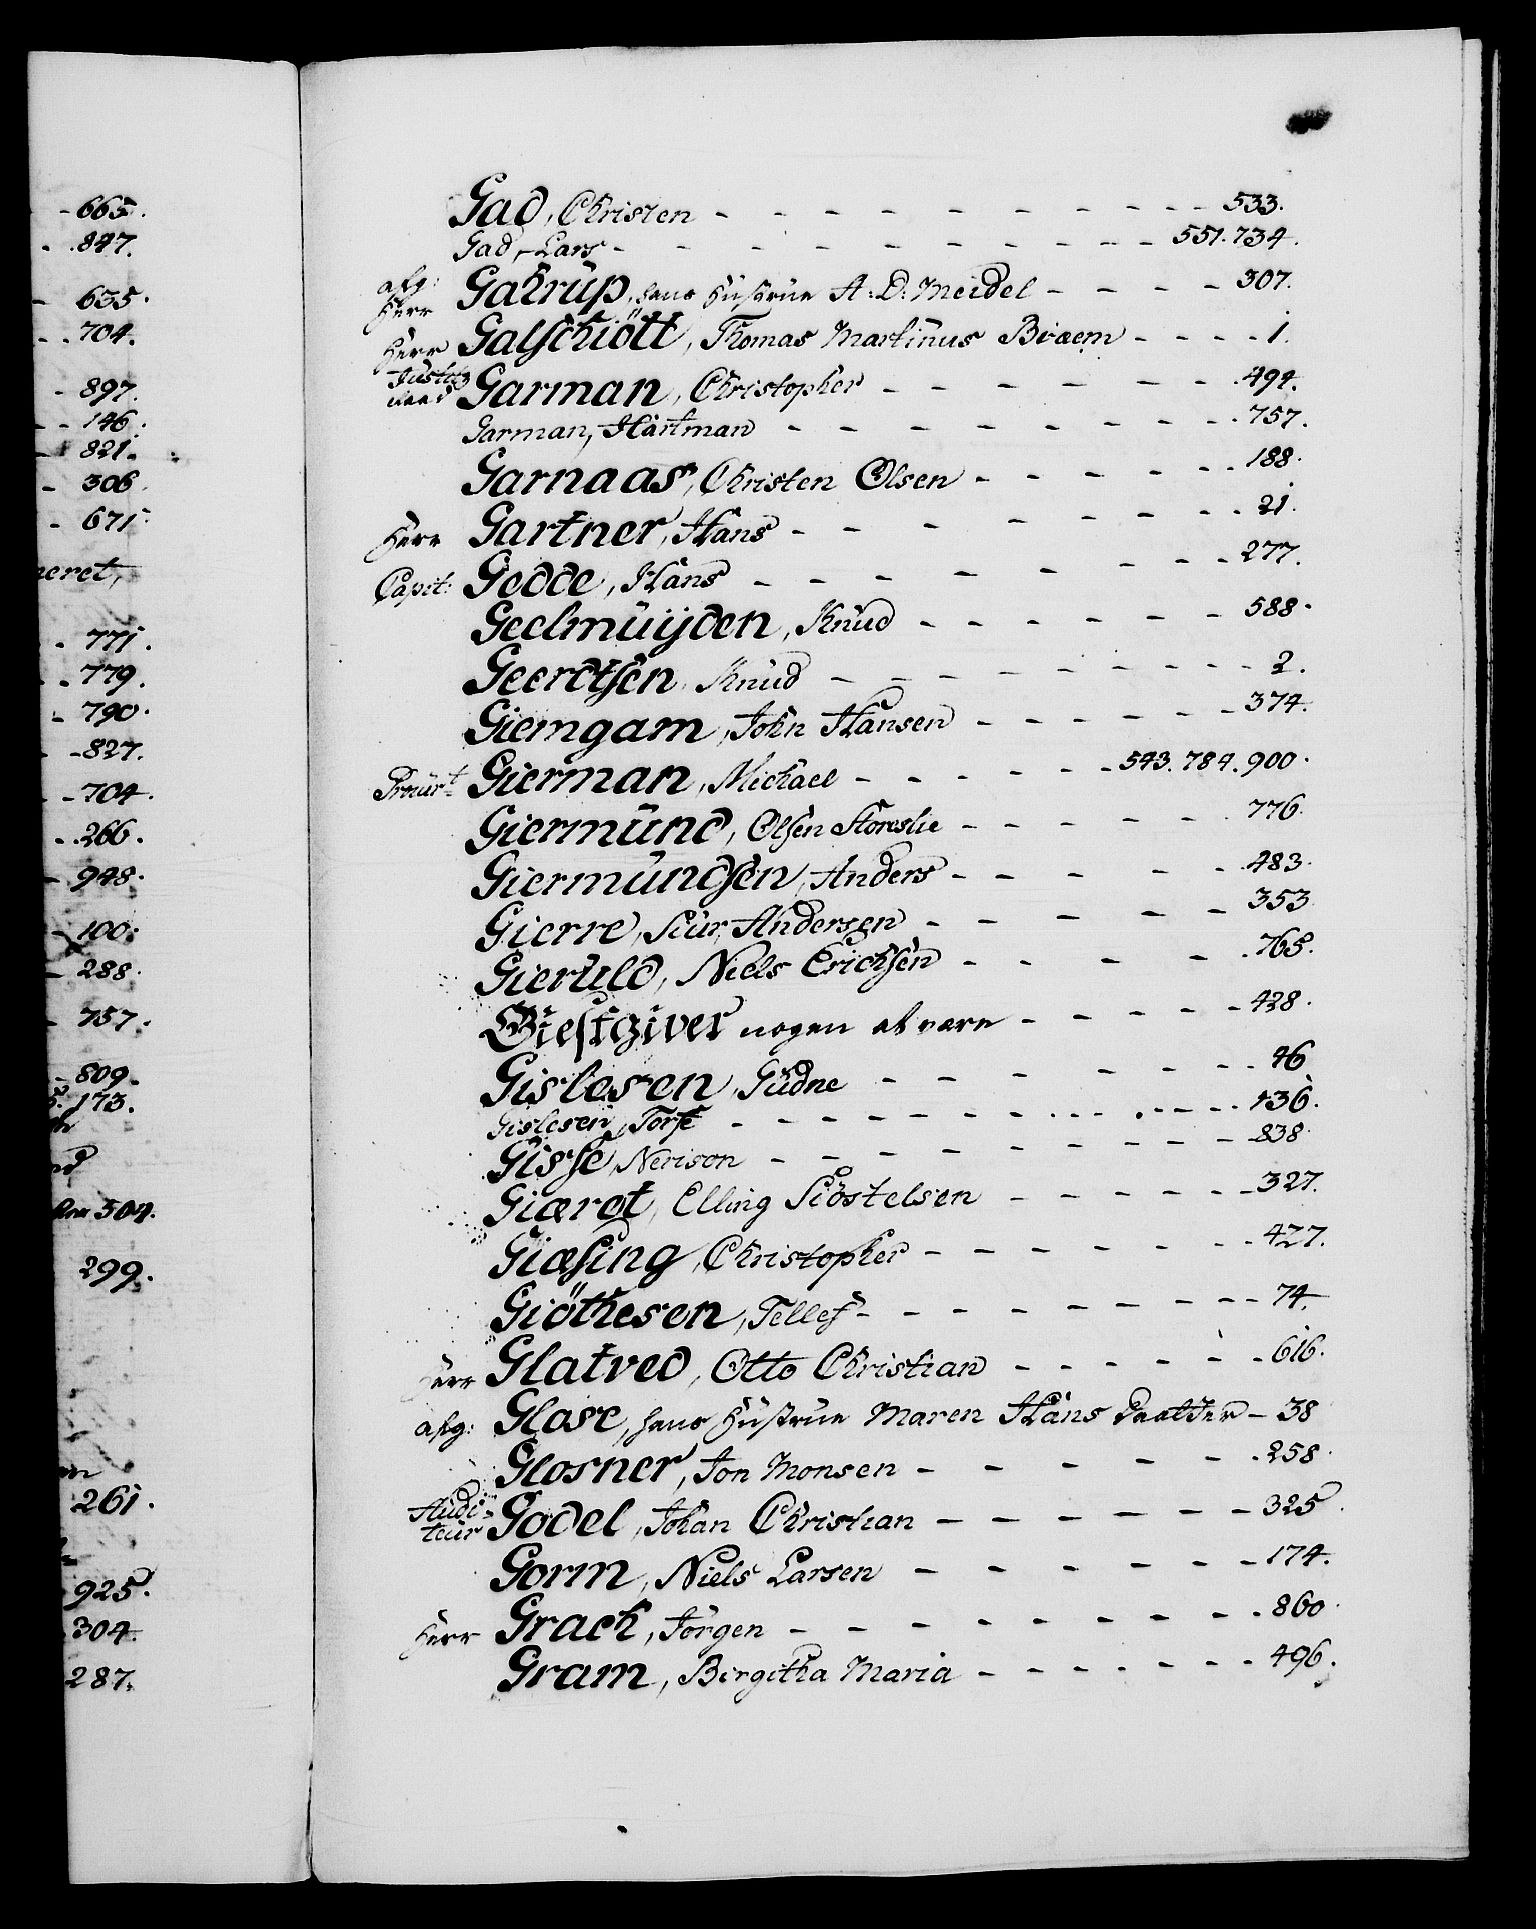 665.
847.
635.
704.
897.
146.
821.
306
671.
neret,
771.
779.
790.
827.
704.
266.
948.
100.
288.
757.
809.
173.
504.
299.
261.
925.
304.
287.
Gad, Christen - - - - - - - - - - - 533.
Gad, Lars - - - - - - - - - - 551. 734.
afg:
Herr Gakrup, hans Hustrue A: D: Meidel - - - - 307.
Herr Galschiött, Thomas Martinus Braem - - - - 1.
Justitz
Raad Garman, Christopher - - - - - - - 494.
Garman, Hartman - - - - - - - - 757.
Garnaas, Christen Olsen - - - - - - 188.
Herr Gartner, Hans - - - - - - - - 21.
Capit: Gedde, Hans - - - - - - - - 277.
Geelmuijden, Knud - - - - - - 588.
Geerdtsen, Knud - - - - - - - - - 2.
Giemgam, John Hansen - - - - - - 374.
Prour.t Gierman, Michael - - - - - - 543. 784. 900.
Giermund, Olsen Storeslie - - - - - - 776.
Giermundsen, Anders - - - - - 483.
Gierre, Siur Andersen - - - - - 353.
Gieruld, Niels Erichsen - - - - - 765.
Giestgiver nogen at være - - - - - 428.
Gislesen, Gudne - - - - - - - 46
Gislesen, Torfe - - - - - - - - - - 136.
Gisse, Nerison - - - - - - - - - 838.
Giærdt, Elling Siöstelsen - - - - - - 327.
Giæsing, Christopher - - - - - - - 427.
Giöthesen, Tellef - - - - - - - - - 74.
Herr Glatved, Otto Christian - - - - - 616.
afg: Glose, hans Hustrue Maren Hans Daatter - 38
Glosner, Jon Monsen - - - - - - 258.
Audi-
teur Godel, Johan Christian - - - - - - 325.
Gorm, Niels Larsen - - - - - - 174.
Herr Grack, Jörgen - - - - - - - - 860.
Gram, Birgitha Maria - - - - - - - 496.